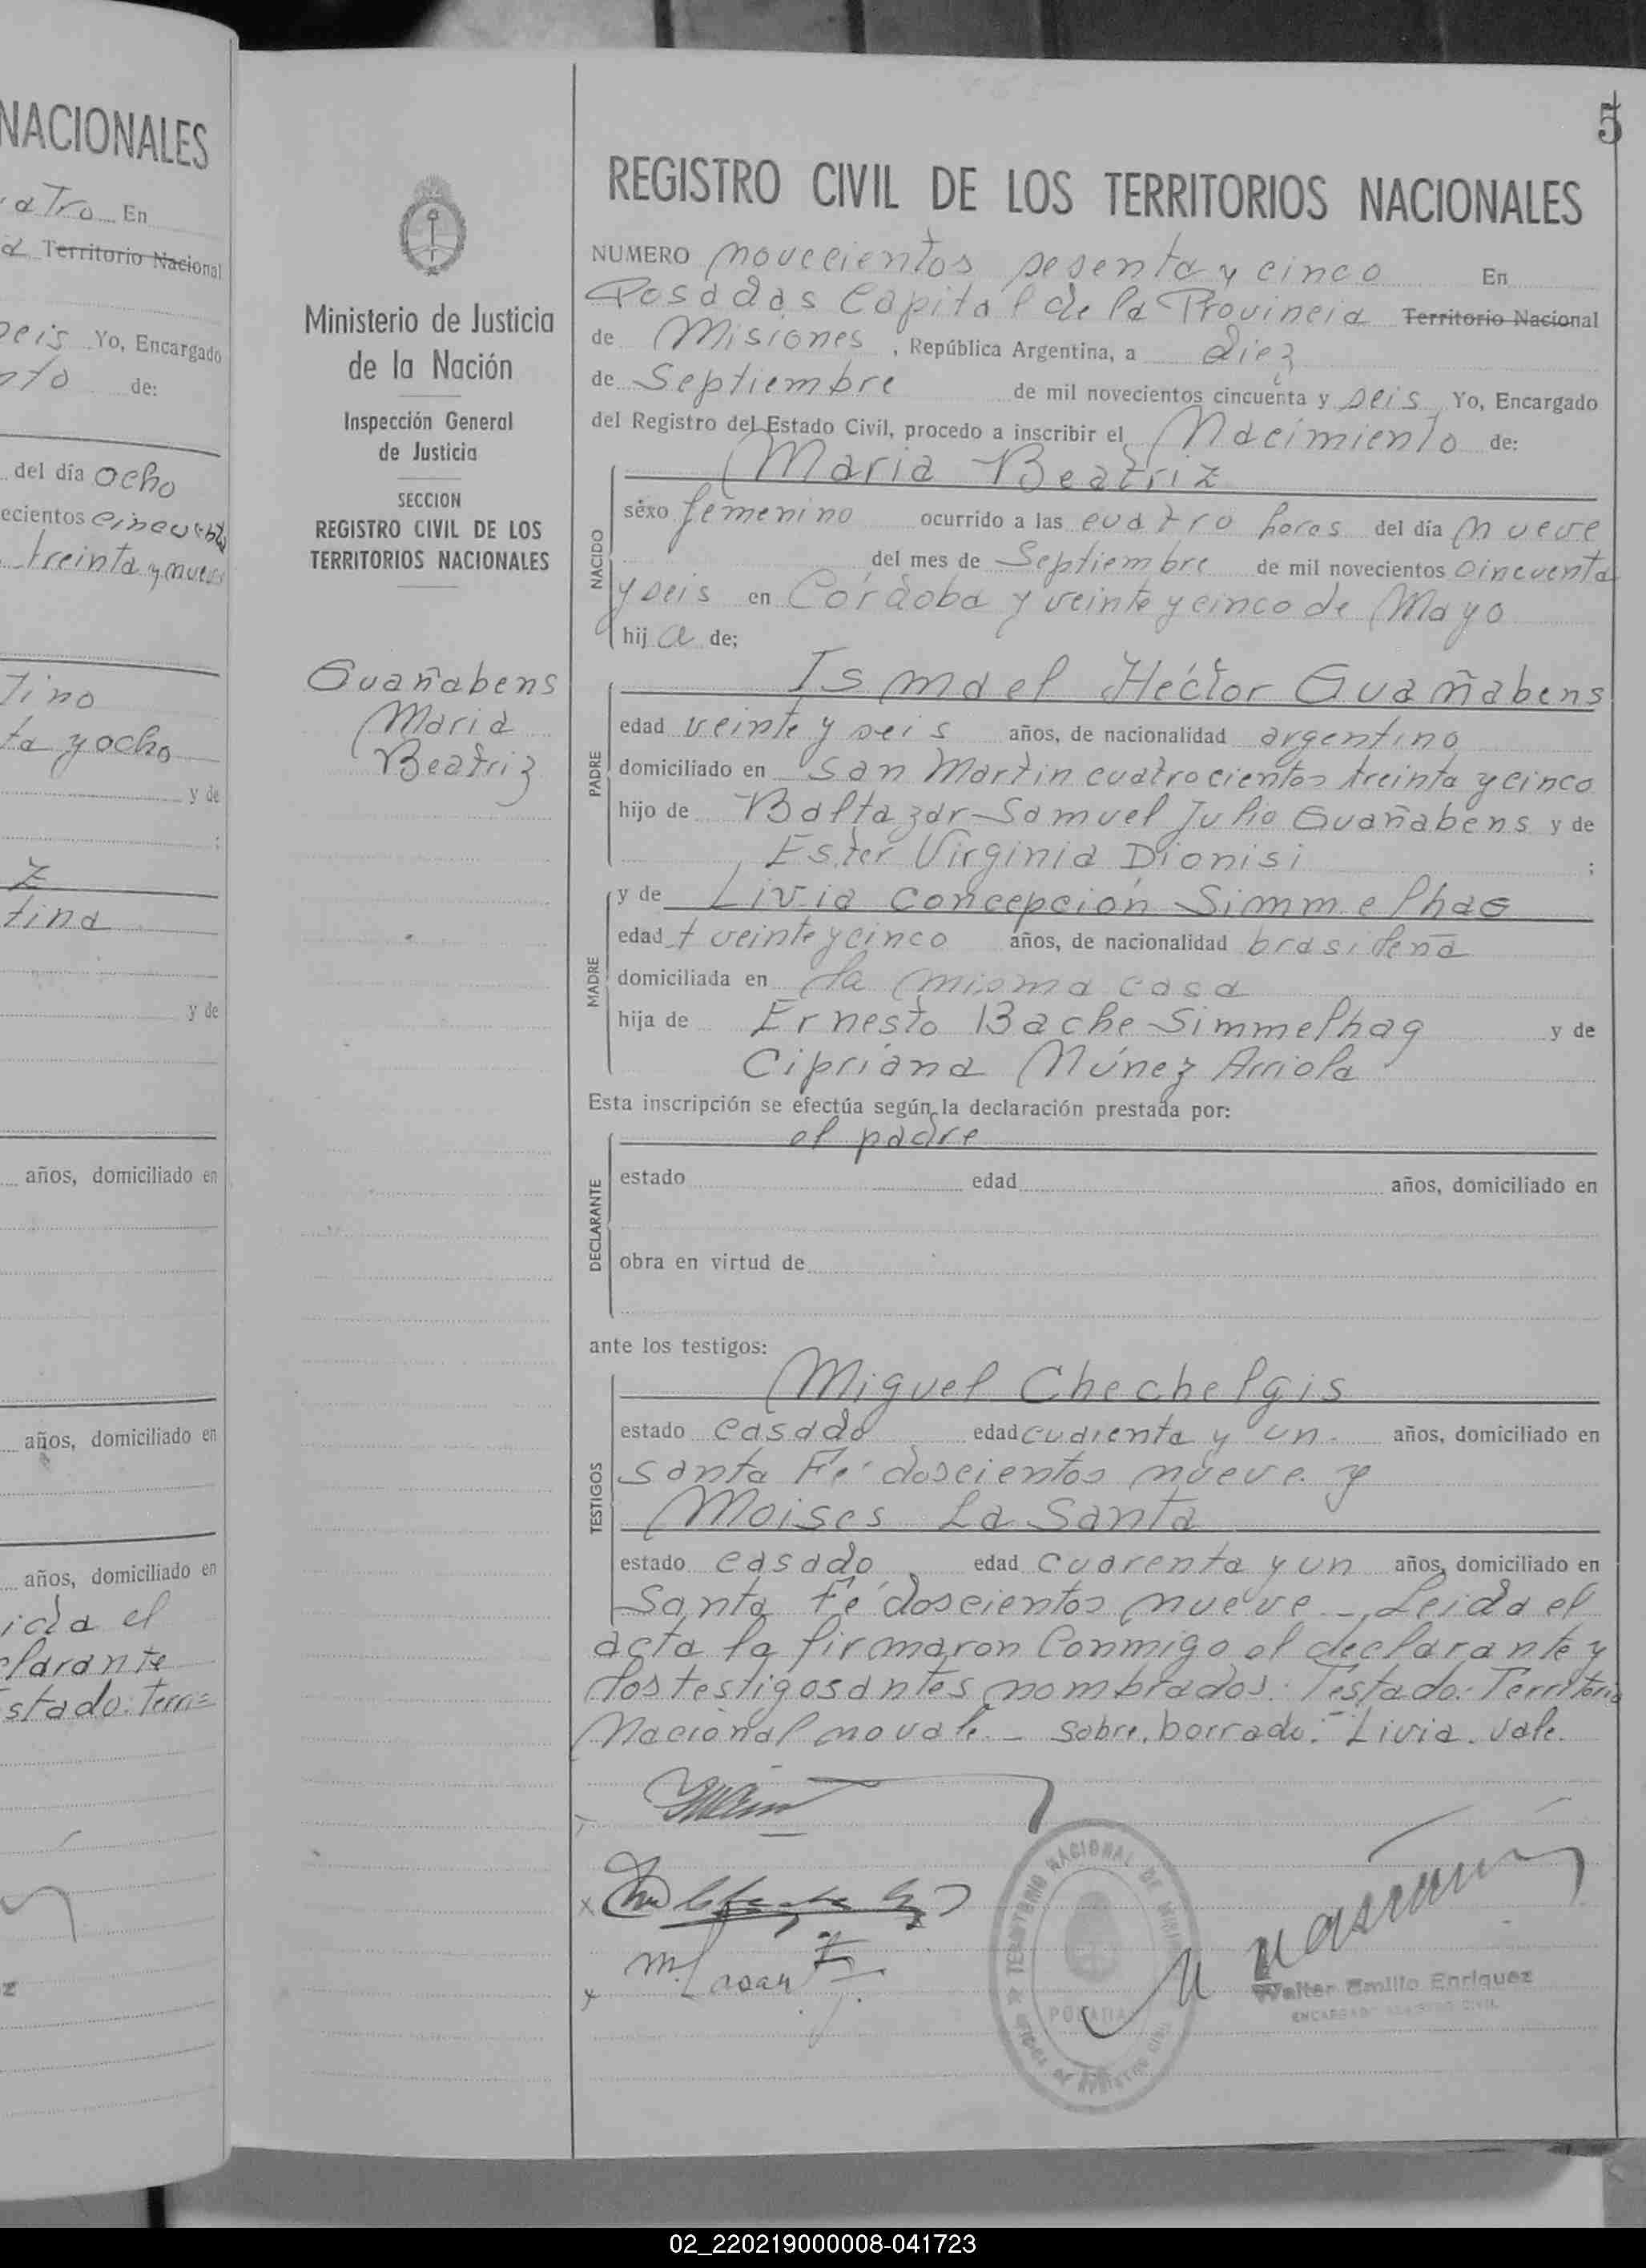 NACIONALES
atro En
Territorio Nacional
seis Yo, Encargado
nto de:
del día ocho
ecientos cincuenta
treinta y nueve
tino
ta y ocho
y de
;
z
tina
y de
años, domiciliado en
años, domiciliado en
años, domiciliado en
ida el
clarante
stado: Terri=
Ministerio de Justicia
de la Nación
Inspección General
de Justicia
SECCION
REGISTRO CIVIL DE LOS
TERRITORIOS NACIONALES
Guañabens
Maria
Beatriz
5
REGISTRO CIVIL DE LOS TERRITORIOS NACIONALES
NUMERO novecientos sesenta y cinco En
Posadas Capital de la Provincia Territorio Nacional
de Misiones, República Argentina, a diez
de Septiembre de mil novecientos cincuenta y seis, Yo, Encargado
del Registro del Estado Civil, procedo a inscribir el Nacimiento de:
Maria Beatriz
NACIDO
sexo femenino ocurrido a las cuatro horas del día nueve
del mes de Septiembre de mil novecientos cincuenta
y seis en Córdoba y veinte y cinco de Mayo
hij a de;
Ismael Héctor Guañabens
PADRE
edad veinte y seis años, de nacionalidad argentino
domiciliado en San Martin cuatrocientos treinta y cinco
hijo de Baltazar Samuel Julio Guañabens y de
Ester Virginia Dionisi ;
y de Livia Concepción Simmelhag
MADRE
edad veinte y cinco años, de nacionalidad brasileña
domiciliada en la misma casa
hija de Ernesto Bache Simmelhag y de
Cipriana Núnez Arriola
Esta inscripción se efectúa según la declaración prestada por:
el padre
DECLARANTE
estado edad años, domiciliado en
obra en virtud de
ante los testigos:
Miguel Chechelgis
TESTIGOS
estado casado edad cuarenta y un años, domiciliado en
Santa Fé doscientos nueve y
Moises La Santa
estado casado edad cuarenta y un años, domiciliado en
Santa Fé doscientos nueve - Leida el
acta la firmaron conmigo el declarante y
los testigos antes nombrados. Testado: Territorio
Nacional no vale - Sobre borrado: Livia. vale.
TERRITORIO NACIONAL DE
POSADAS
Walter Emilio Enriquez
ENCARGADO REGISTRO CIVIL
02_220219000008-041723